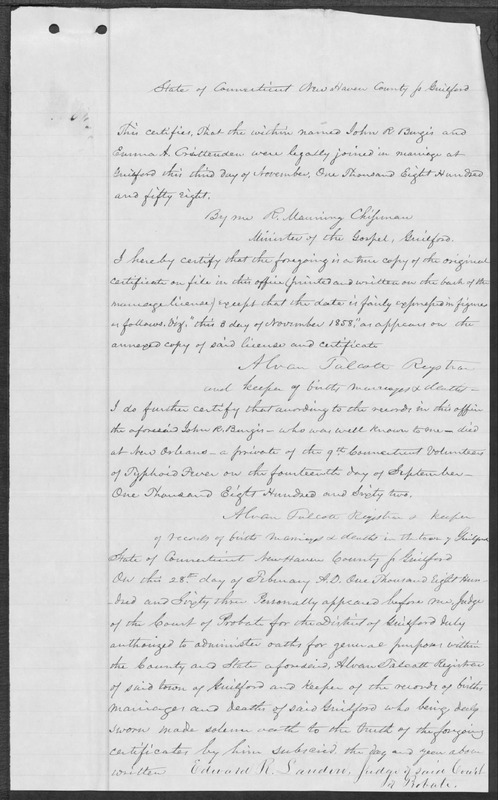 State of Connecticut New Haven County ss Guilford
This certifies, That the within named John R. Burgis and
Emma A. Crittenden were legally joined in mariage at
Guilford this third day of November, One Thousand Eight Hundred
and fifty eight.
By me R. Manning Chipman
Minister of the Gospel, Guilford.
I hereby certify that the foregoing is a true copy of the original
certificate on file in this office (printed and written on the back of the
marriage license) except that the date is fairly expressed in figures
as follows. Viz, "this 3 day of November 1858," as appears on the
annexed copy of said license and certificate
Alvan Talcott Registrar
and keeper of births marriages & deaths—
I do further certify that according to the records in this office
the aforesaid John R. Burgis— who was well known to me— died
at New Orleans— a private of the 9th Connecticut Volunteers
of Typhoid Fever on the fourteenth day of September—
One Thousand Eight Hundred and Sixty two.
Alvan Talcott Registrar & keeper
of records of birth marriages & deaths in the town of Guilford
State of Connecticut New Haven County ss Guilford
On this 28th day of February A.D. One Thousand Eight Hun-
-dred and Sixty three Personally appeared before me Judge
of the Court of Probate for the district of Guilford duly
authorized to administer oaths for general purposes within
the County and State aforesaid, Alvan Talcott Registrar
of said town of Guilford and keeper of the records of births
marriages and deaths of said Guilford who being duly
sworn made solemn oath to the truth of the foregoing
certificates by him subscribed the day and year above
written Edward R. Landon, Judge of said Court
of Probate.